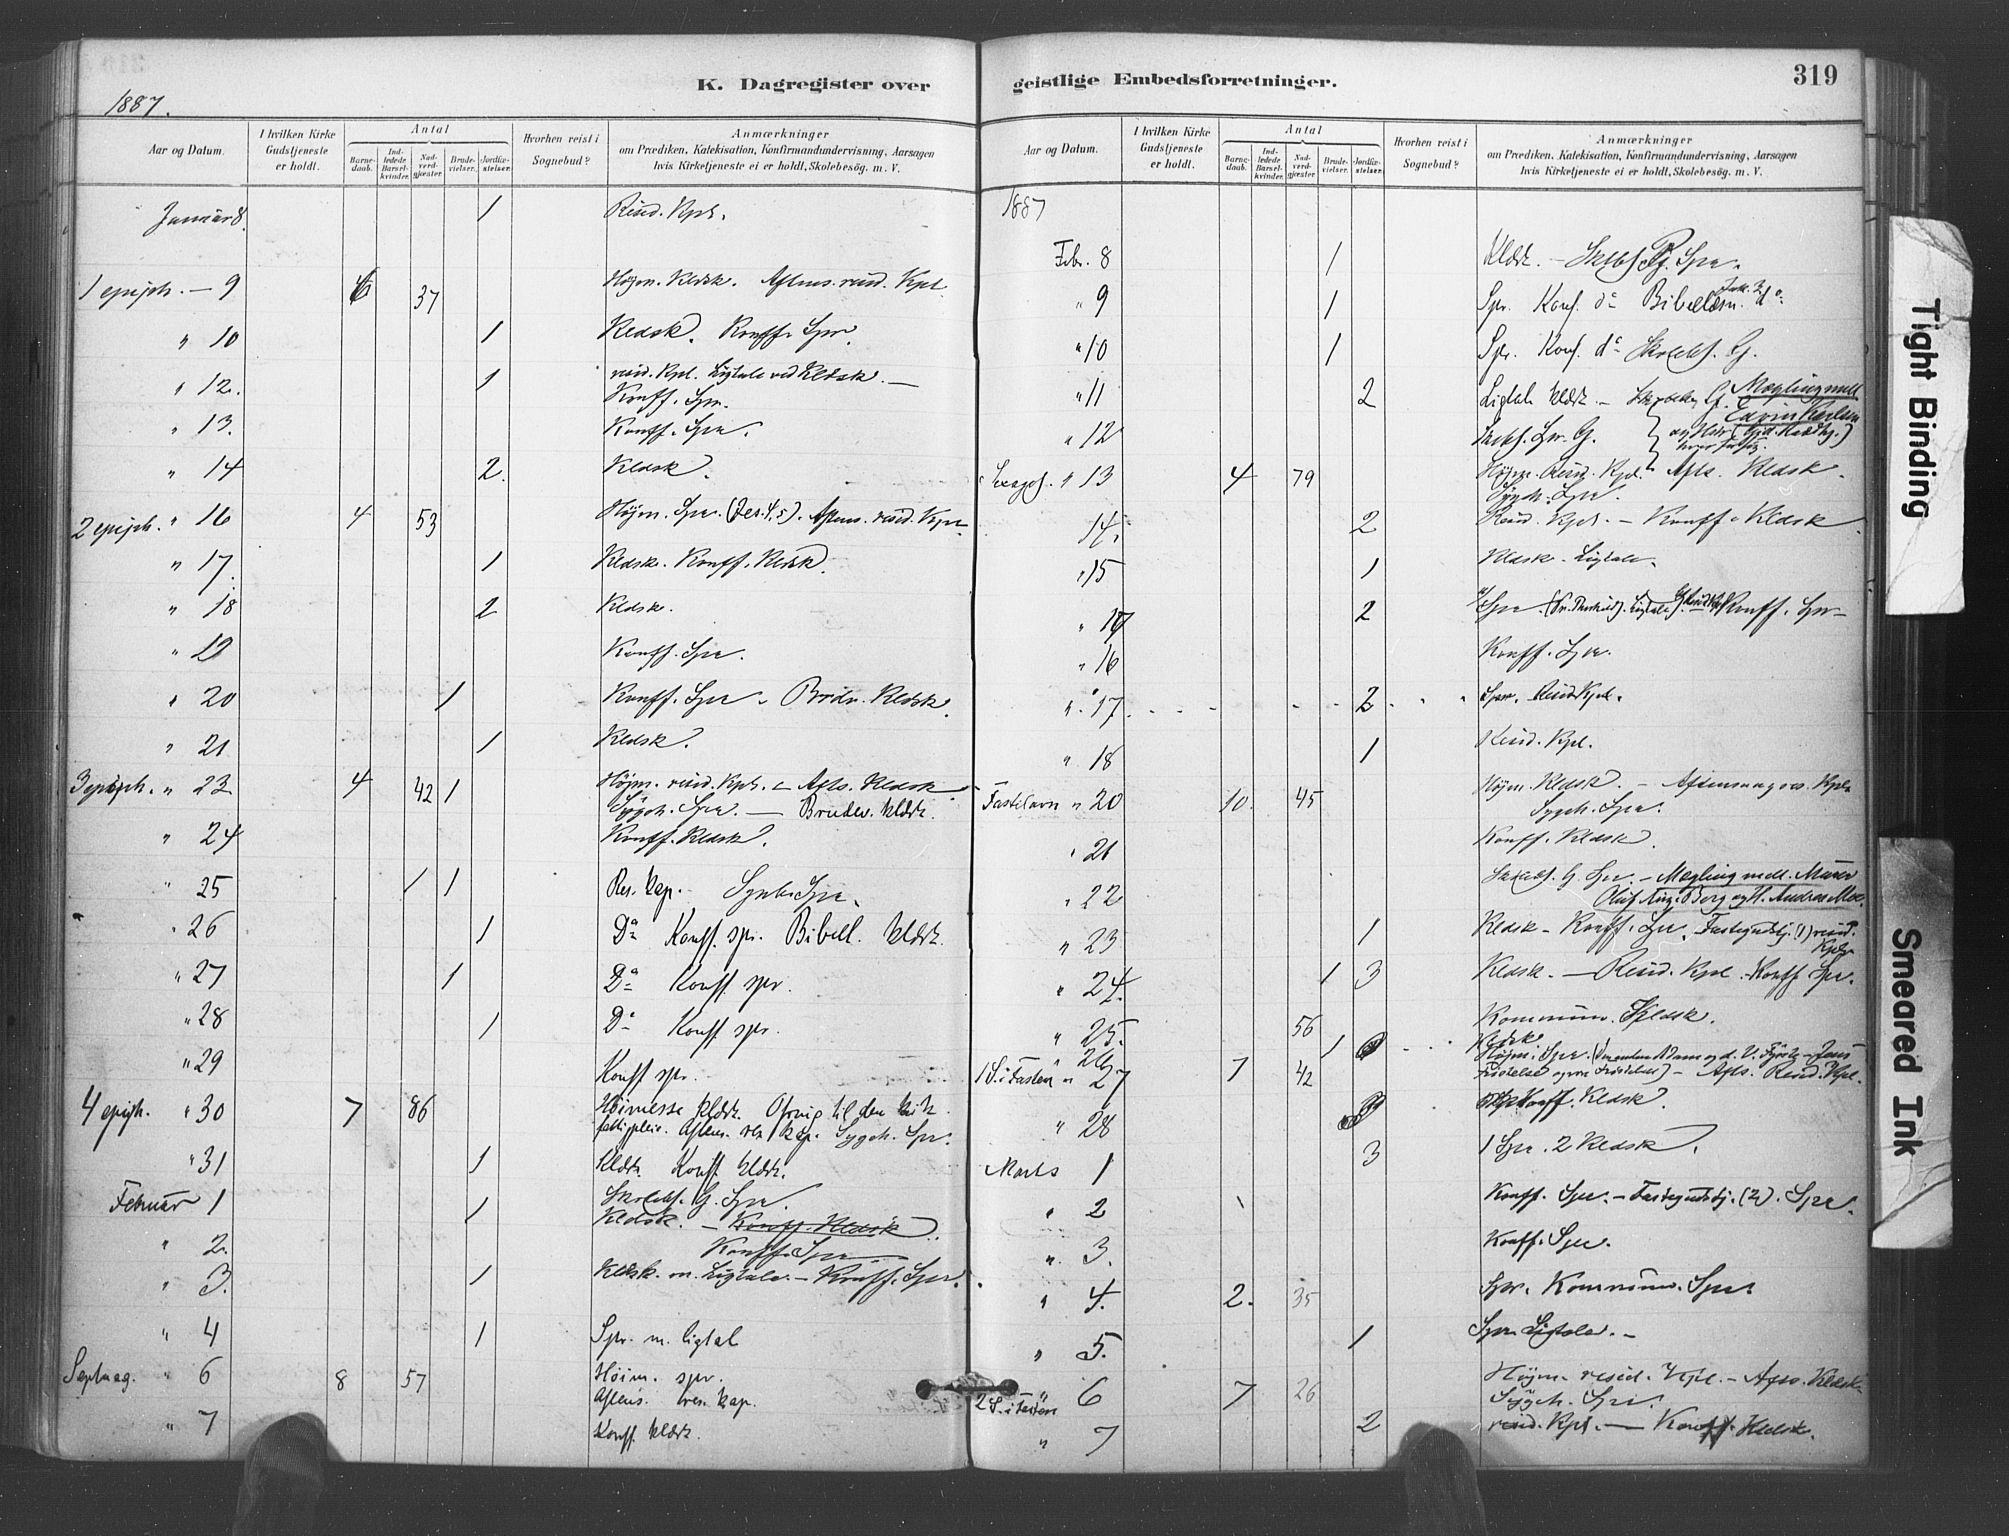 K. Dagregister over
geistlige Embedsforretninger.
319
1887.
Aar og Datum.
I hvilken Kirke Gudstjeneste er holdt.
Antal
Barne-daab.
Ind-ledede Barsel-kvinder.
Nad-verd-gjæster.
Brude-vielser.
Jordfæ-stelser.
Hvorhen reist i Sognebud?
Anmærkninger
om Prædiken, Katekisation, Konfirmandundervisning, Aarsagen
hvis Kirketjeneste ei er holdt, Skolebesøg. m. V.
Januar 8. 1 Resid. Kpl.
1 epiph. — 9 6 37 Højm. Kldsk. Aftens. resid. Kpl.
" 10 1 Kldsk. Konff. Spr.
" 12. 1 resid. Kpl. Ligtale ved Kldsk. —
Konff. Spr.
" 13. Konff. Spr.
" 14 2. Kldsk.
2 epiph. " 16 4 53 Højm. Spr. (Jes. 4, 5). Aftens. resid. Kpl.
" 17. 1 Kldsk. Konff. Kldsk.
" 18 2 Kldsk.
" 19 Konff. Spr.
" 20 1 Konff. Spr. Brudv. Kldsk.
" 21 1 Kldsk.
3 epiph. " 23 4 42 1 Højm. resid. Kpl. — Afts. Kldsk.
Sygeh. Spr. — Brudev. Kldsk.
" 24 Konff. Kldsk.
" 25 1 1 Res. kap. Spr.
" 26 1 Do Konff. spr. Bibell. Kldsk.
" 27 1 Do Konff. spr.
" 28 1 Do Konff. spr.
" 29 Konff spr.
4 epiph. " 30 7 86 Høimesse Kldsk. Ofring til den
Aftens. res. kap. Sygeh. Spr.
" 31 1 Kldsk. Konff. Kldsk.
Februar 1 1 Skolebs. G. Spr.
Kldsk. — Konff. Kldsk.
" 2. Konff. Spr.
" 3. 1 Kldsk. m. Ligtale. — Konff. Spr.
" 4 1 Spr. m. ligtal
Septuag. " 6 8 57 Høim. spr.
Aftens. res. kap.
" 7 Konff. Kldsk.
Aar og Datum.
I hvilken Kirke Gudstjeneste er holdt.
Antal
Barne-daab.
Ind-ledede Barsel-kvinder.
Nad-verd-gjæster.
Brude-vielser.
Jordfæ-stelser.
Hvorhen reist i Sognebud?
Anmærkninger
om Prædiken, Katekisation, Konfirmandundervisning, Aarsagen
hvis Kirketjeneste ei er holdt, Skolebesøg. m. V.
1887
Febr. 8 1 Kldsk. — Skolebs. Spr.
" 9 1 Spr. Konf. do Bibellæsn. do
" 10 1 Spr. Konf. do Skolebs. G.
" 11 2 Ligtale Kldsk. — G. Mægling mell.
" 12 Skolebs. Spr. G.
Sexages. " 13 4 79 Højm. Resid. Kpl. Afts. Kldsk.
Sygeh. Spr.
14. 2 Resid. Kpl. — Konff. Kldsk
" 15 1 Kldsk. Ligtale.
" 17 2 Spr. Ligtale Konff. Spr.
" 16 Konff. Spr.
" 17. 2 Spr. Resid. Kpl.
" 18 1 Resid. Kpl.
Fastelavn " 20 10. 45 Højm. Kldsk. — Aftensang res. Kpl.
Sygeh. Spr.
" 21 Konff. Kldsk.
" 22 Skolebs. G. Spr. — Mægling mell. Murer
Oluf Aug. Berg og H. Andrea Moe.
" 23 1 Kldsk — Konff. Spr. Fastegudstj. (1) resid. Kpl.
" 24. 1 3 Kldsk. — Resid. Kpl. Konff Spr.
" 25. 56 Kommunion. Kldsk.
" 26 1 Kldsk.
1 S. i Fasten " 27 7 42 Højm. Spr.
Afts. Resid. Kpl.
" 28 Konff. Kldsk.
Marts 1 3 1 Spr. 2 Kldsk.
" 2 Konff. Spr. — Fastegudstj. (2). Spr.
" 3. Konff. Spr.
" 4. 2. 35 Spr. Kommunion. Spr.
" 5. 1 Spr. Ligtale. —
2 S. i Fasten 6 7 26 Højm. resid. Kpl. — Afts. Kldsk.
Sygeh. Spr.
" 7 2 resid. Kpl. — Konff. Kldsk.
Tight Binding
Smeared Ink